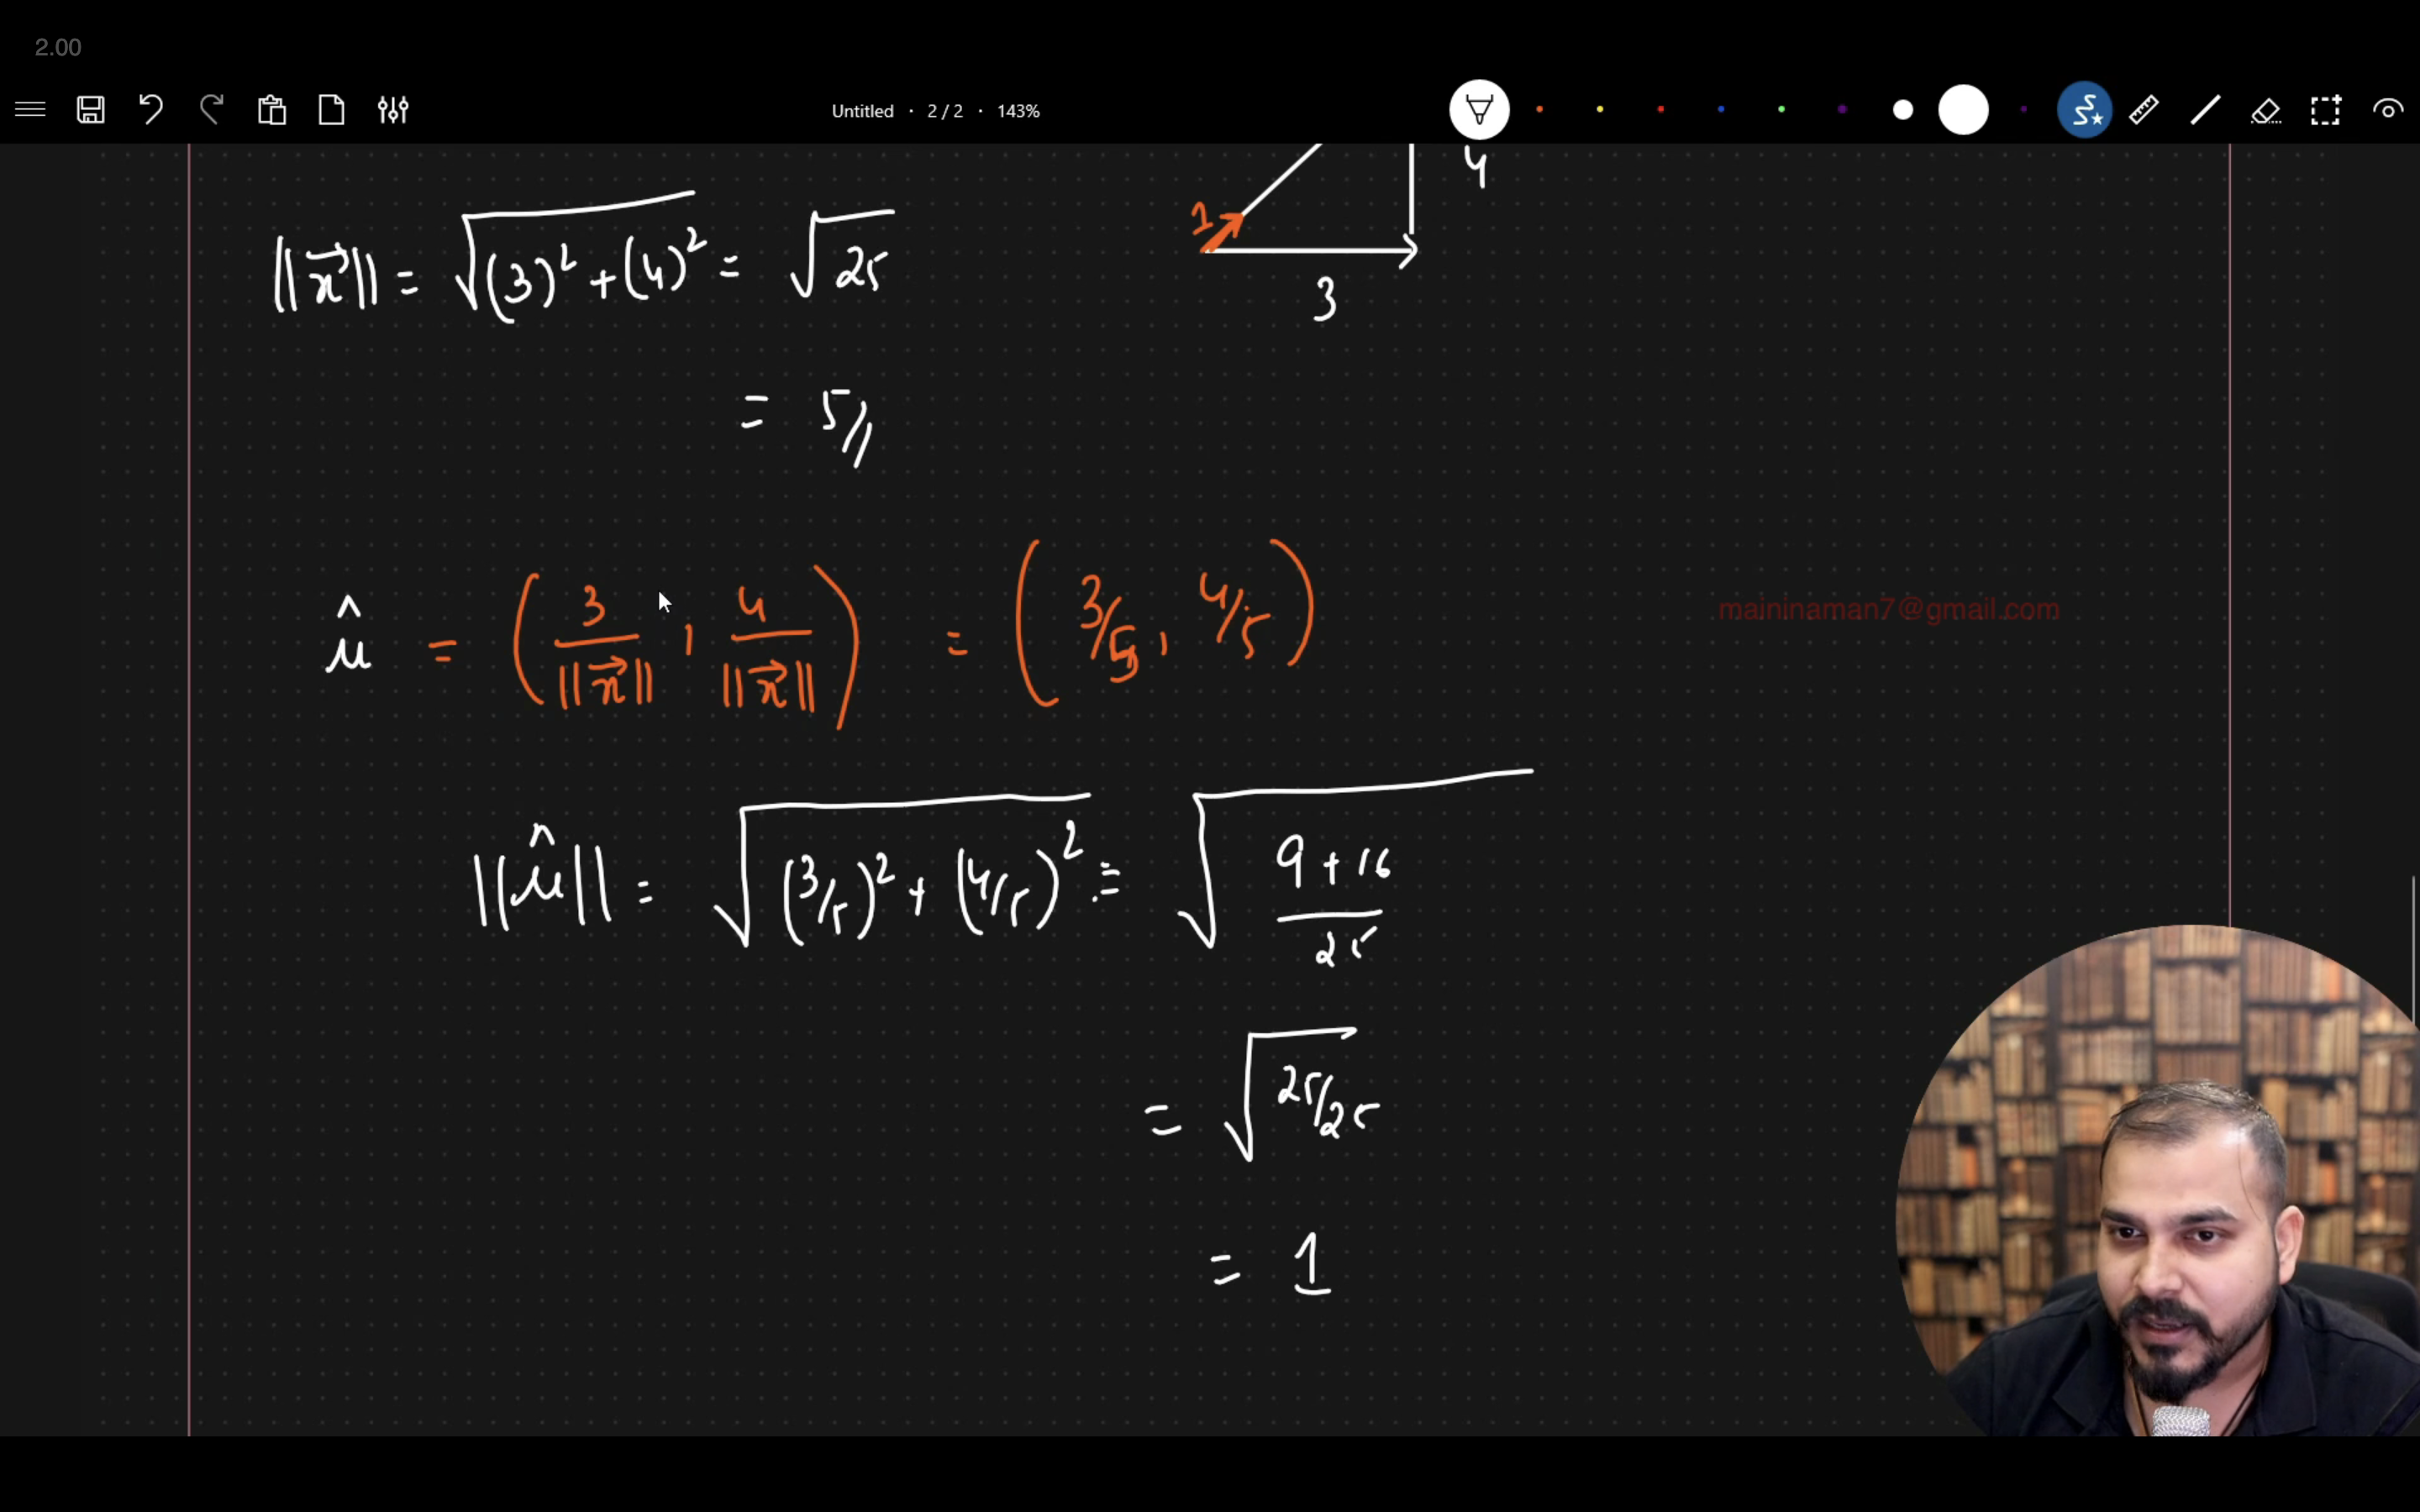 2.00
Untitled · 2 / 2 · 143%
4
1
3
||x⃗|| = √(3)² + (4)² = √25
= 5//
û = (3/||x⃗||, 4/||x⃗||) = (3/5, 4/5)
maininaman7@gmail.com
||û|| = √(3/5)² + (4/5)² = √(9 + 16)/25
= √25/25
= 1